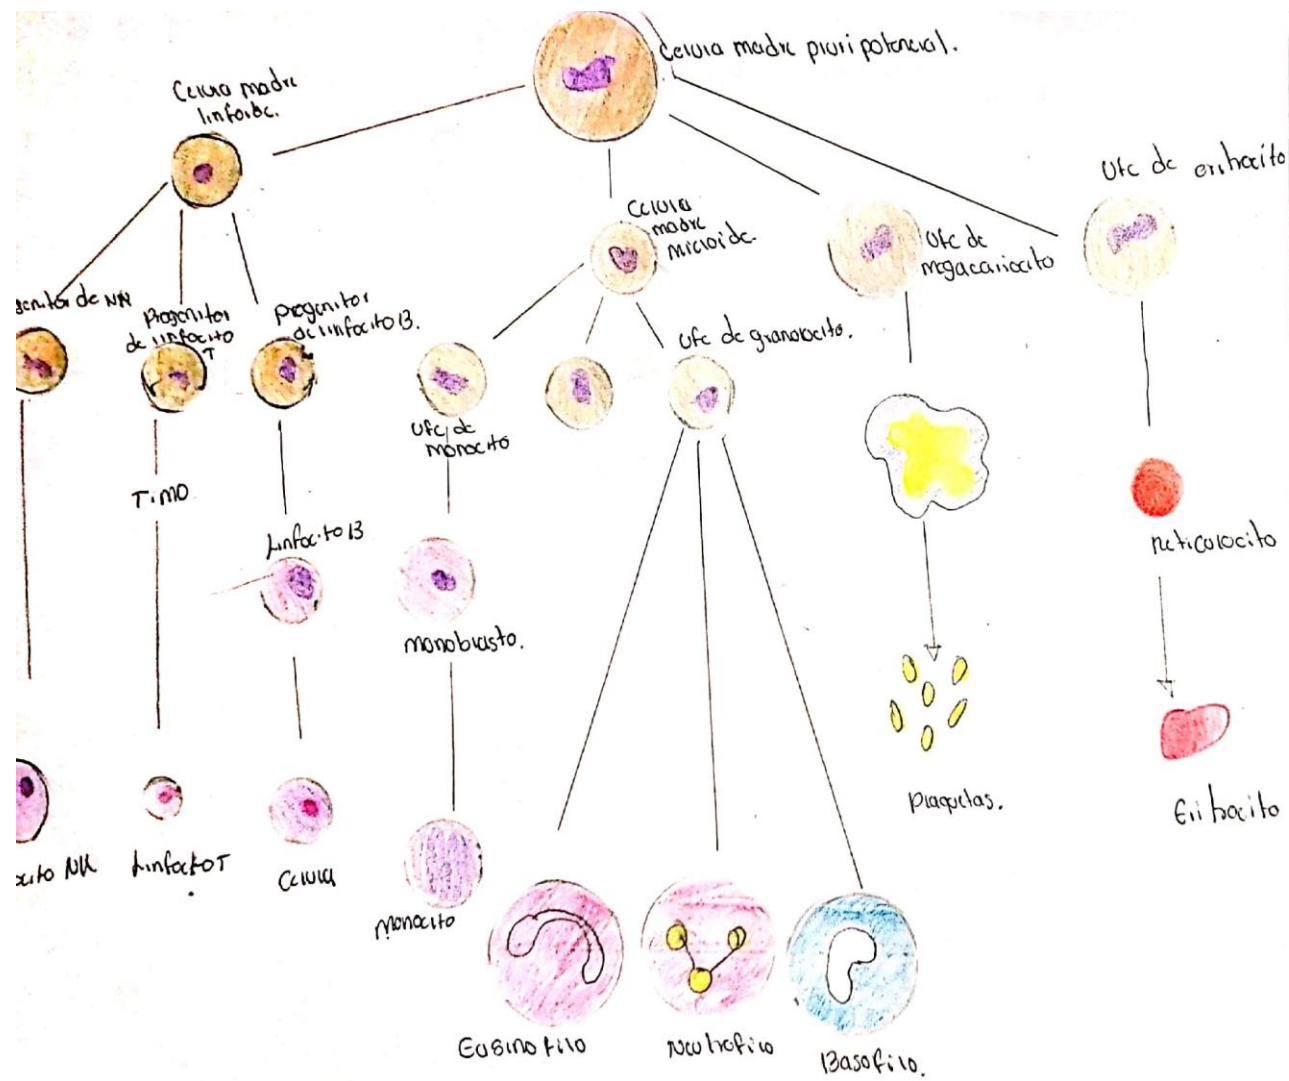 Celula madre pluripotencial.
Celula madre
linfoide.
Ufc de eritrocito
Celula
madre
mieloide.
Ufc de
megacariocito
genitor de NK
Progenitor
de linfocito
T
Progenitor
de linfocito B.
Ufc de granolocito.
Ufc de
monocito
Timo
Linfocito B
reticulocito
monoblasto.
Plaquetas.
Eritrocito
ocito NK
Linfocito T
Celula
monocito
Eosinofilo
Neutrofilo
Basofilo.